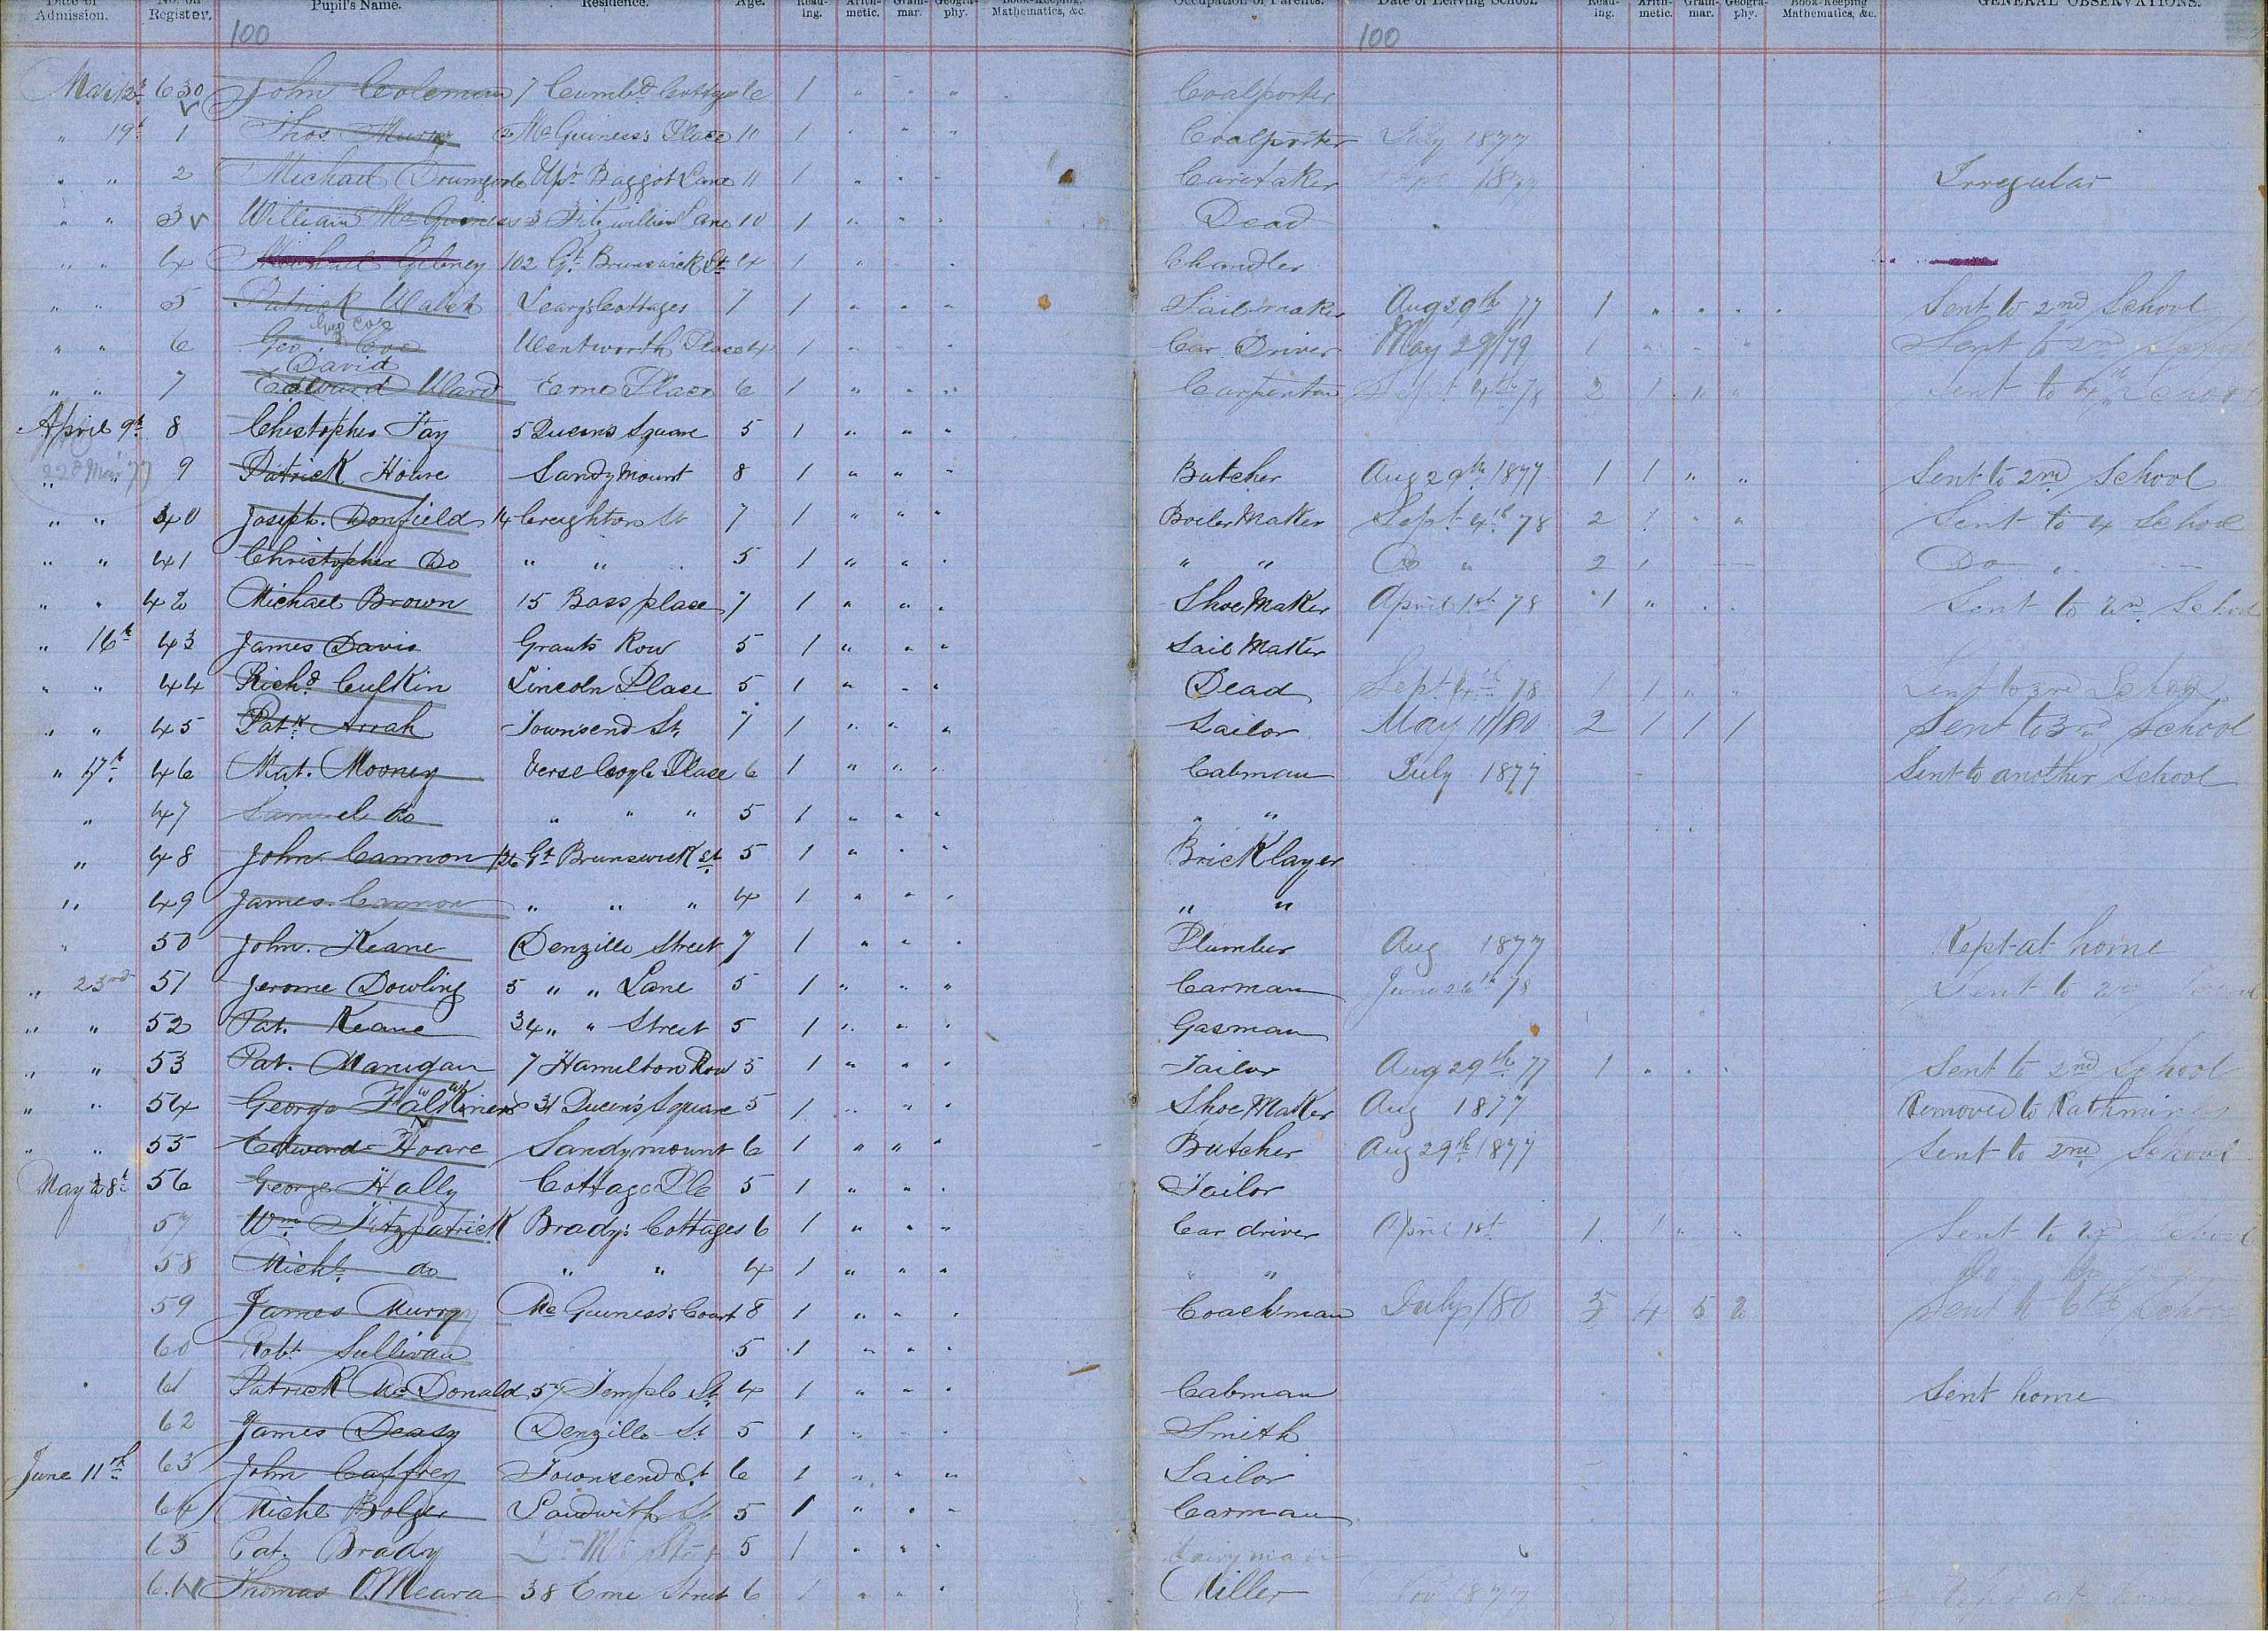 Date of Admission. No. on Register. Pupil's Name. Residence. Age. Read-ing. Arith-metic. Gram-mar. Geogra-phy. Book-Keeping Mathematics, &c. Occupation of Parents. Date of Leaving School. Read-ing. Arith-metic. Gram-mar. Geogra-phy. Book-Keeping Mathematics, &c. GENERAL OBSERVATIONS.
100 100
Mar 12th 630 John Coleman 7 Cumbd. Cottages 6 1 " " " Coalporter
" 19th 1 Thos Murray 2 McGuiness's Place 10 1 " " " Coalporter July 1877
" " 2 Michael Upr Baggot Lane 11 1 " " " Caretaker 1877 Irregular
" " 3 William McGuiness 3 Fitzwilliam Lane 10 1 " " " Dead
" " 4 Michael Gibney 102 Gt. Brunswick St 4 1 " " " Chandler
" " 5 Patrick Walsh Leary's Cottages 7 1 " " " Sailmaker Aug 29th 77 1 " " " Sent to 2nd School
" " 6 Geo. Coe Wentworth Place 4 1 " " " Car Driver May 29/79 1 " " " Sent to 2nd School
David
" " 7 Edward Ward Erne Place 6 1 " " " Carpenter Sept 4th 78 2 1 " " Sent to 4th School
April 9th 8 Chistopher Fay 5 Queens Square 5 1 " " "
22d Mar 77 9 Patrick Hoare Sandymount 8 1 " " " Butcher Aug 29th 1877 1 1 " " Sent to 2nd School
" " 40 Joseph Donfield 14 Creighton St 7 1 " " " Boiler Maker Sept. 4th 78 2 1 " " Sent to 4 School
" " 41 Christopher Do " " 5 1 " " " " " Do " 2 1 Do "
" " 42 Michael Brown 15 Bass place 7 1 " " " Shoe Maker April 1st 78 1 " " " Sent to 2nd School
" 16th 43 James Davis Grants Row 5 1 " " " Sail Maker
" " 44 Richd Culkin Lincoln Place 5 1 " " " Dead Sept. 4th 78 1 1 " " Sent to 3rd School
" " 45 Patk Arrah Townsend St 7 1 " " " Sailor May 11/80 2 1 1 1 Sent to 3rd School
" 17th 46 Mat. Mooney Verschoyle Place 6 1 " " " Cabman July 1877 Sent to another School
" 47 Samuel do " " " 5 1 " " " " "
" 48 John Cannon 126 Gt Brunswick St 5 1 " " " Bricklayer
" 49 James Cannon " " " 4 1 " " " " "
" 50 John Keane Denzille Street 7 1 " " " Plumber Aug 1877 Kept at home
" 23rd 51 Jerome Dowling 5 " " Lane 5 1 " " " Carman June 26th 78 Sent to 2nd School
" " 52 Pat. Keane 34 " " Street 5 1 " " " Gasman
" " 53 Pat. Manigan 7 Hamilton Row 5 1 " " " Tailor Aug 29th 77 1 " " " Sent to 2nd School
" " 54 George 31 Queen's Square 5 1 " " " Shoe Maker Aug 1877 Removed to Rathmines
" " 55 Edward Hoare Sandymount 6 1 " " " Butcher Aug 29th 1877 Sent to 2nd School
May 28th 56 George Hally Cottage Ple 5 1 " " " Tailor
57 Wm Fitzpatrick Brady's Cottages 6 1 " " " Car driver April 1st 1 1 " " Sent to 2nd School
58 Michl. do " " 4 1 " " " " " Do
59 James Murray McGuiness's Court 8 1 " " " Coachman July/80 5 4 5 2 Sent to 6th School
60 Robt Sullivan 5 1 " " "
61 Patrick McDonald 57 Temple St. 4 1 " " " Cabman Sent home
62 James Deasy Denzille St 5 1 " " " Smith
June 11th 63 John Caffrey Townsend St 6 1 " " " Sailor
64 Michl Bolger Sandwith St 5 1 " " " Carman
65 Pat. Brady 5 1 " " " Dairyman
66 Thomas O.Meara 38 Erne Street 6 1 " " " Miller Nov 1877 Kept at home